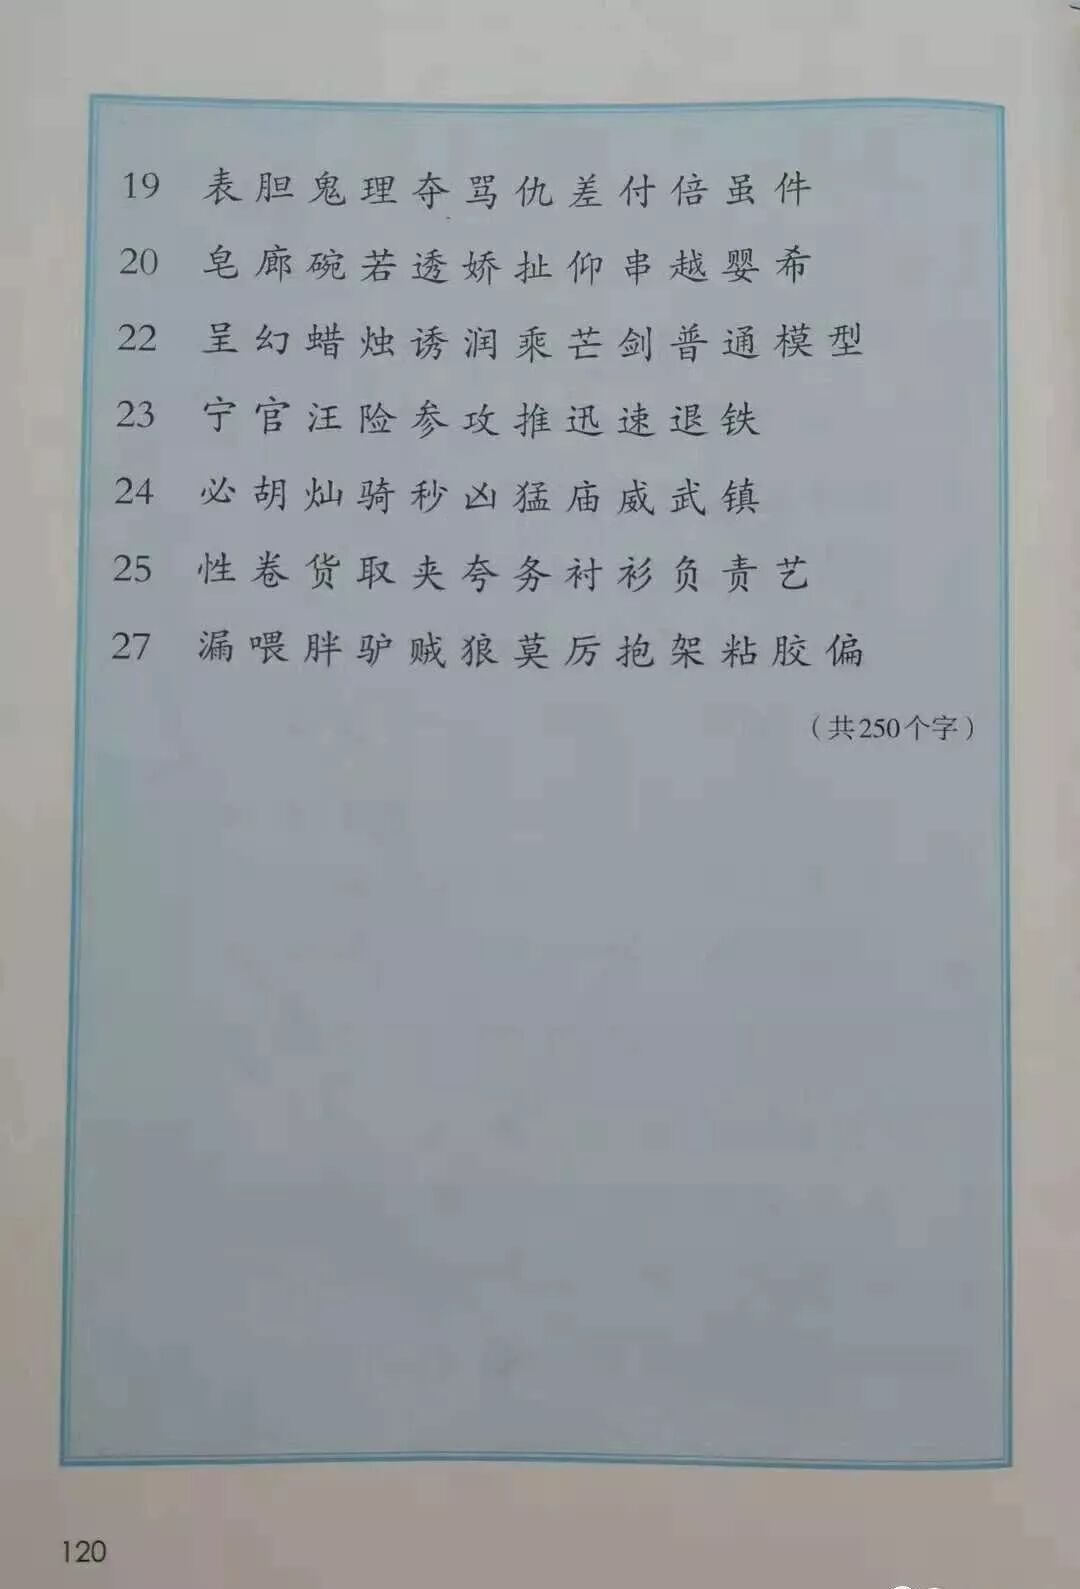 19 表 胆 鬼 理 夺 骂 仇 差 付 倍 虽 件
20 皂 廊 碗 若 透 娇 扯 仰 串 越 婴 希
22 呈 幻 蜡 烛 诱 润 乘 芒 剑 普 通 模 型
23 宁 官 汪 险 参 攻 推 迅 速 退 铁
24 必 胡 灿 骑 秒 凶 猛 庙 威 武 镇
25 性 卷 货 取 夹 夸 务 衬 衫 负 责 艺
27 漏 喂 胖 驴 贼 狼 莫 厉 抱 架 粘 胶 偏
（共250个字）
120